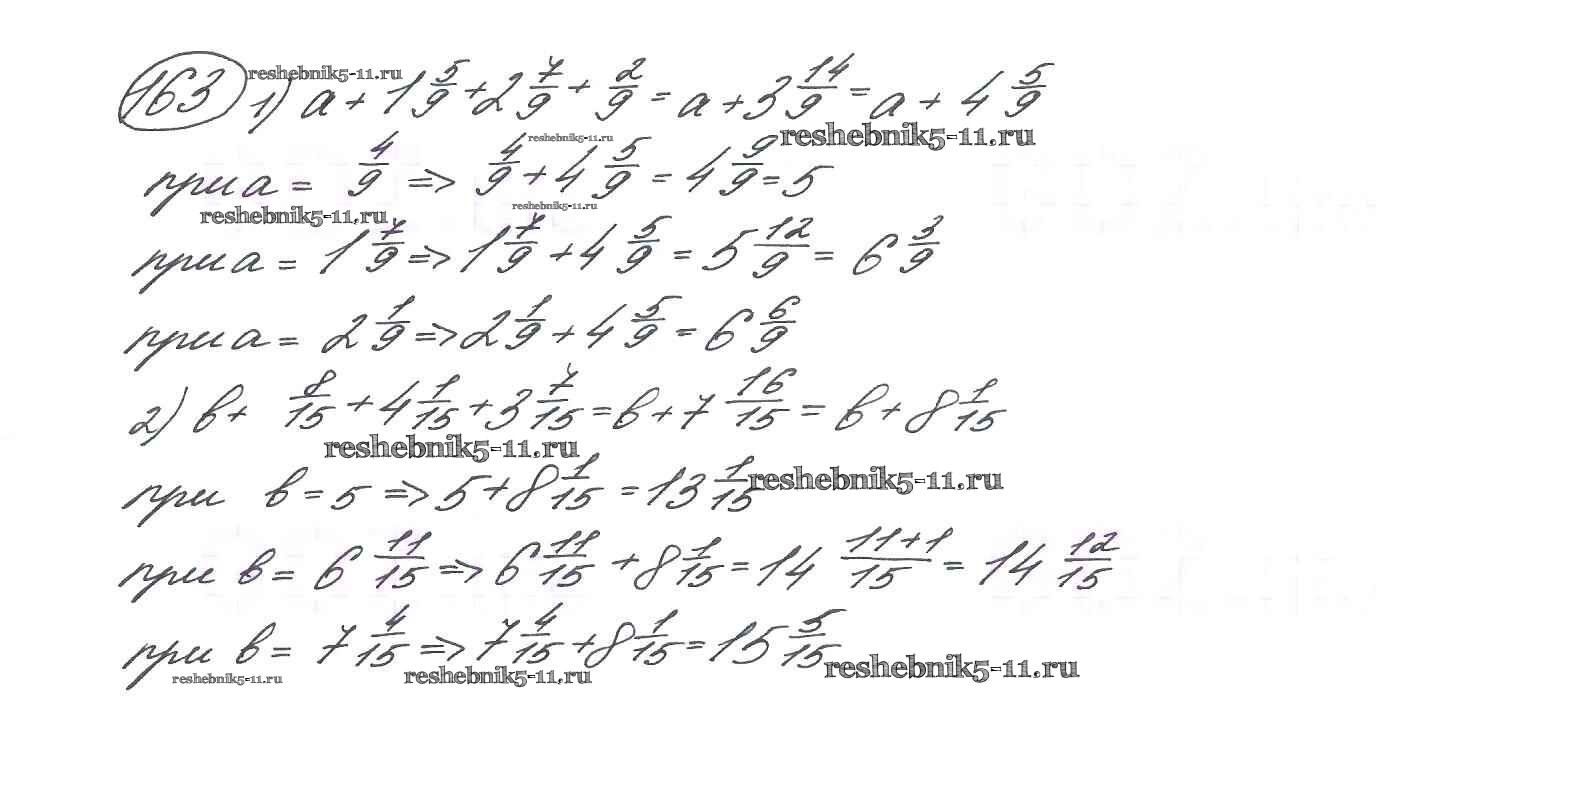 163 reshebnik5-11.ru 1) a + 1 5/9 + 2 7/9 + 2/9 = a + 3 14/9 = a + 4 5/9
reshebnik5-11.ru reshebnik5-11.ru
при a = 4/9 => 4/9 + 4 5/9 = 4 9/9 = 5
reshebnik5-11.ru reshebnik5-11.ru
при a = 1 7/9 => 1 7/9 + 4 5/9 = 5 12/9 = 6 3/9
при a = 2 1/9 => 2 1/9 + 4 5/9 = 6 6/9
2) в + 8/15 + 4 1/15 + 3 7/15 = в + 7 16/15 = в + 8 1/15
reshebnik5-11.ru
при в = 5 => 5 + 8 1/15 = 13 1/15 reshebnik5-11.ru
при в = 6 11/15 => 6 11/15 + 8 1/15 = 14 11+1/15 = 14 12/15
при в = 7 4/15 => 7 4/15 + 8 1/15 = 15 5/15 reshebnik5-11.ru
reshebnik5-11.ru reshebnik5-11.ru